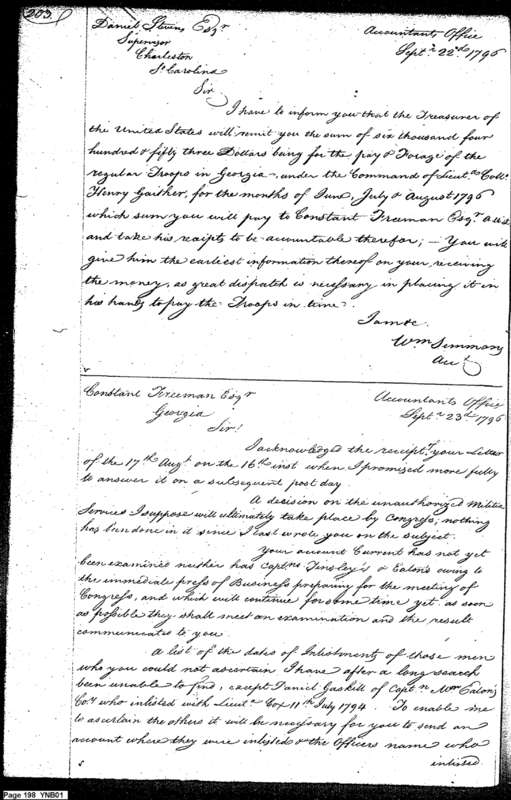 203.
Daniel Stevens Esqr
Supervisor
Charleston
So Carolina
Accountants Office
Septr 22nd 1796
Sir
I have to inform you that the Treasurer of
the United States will remit you the sum of six thousand four
hundred & fifty three Dollars being for the pay & Forage of the
regular Troops in Georgia, under the Command of Lieut. Coll.
Henry Gaither, for the months of June, July & August 1796
which sum you will pay to Constant Freeman Esqr
and take his reciepts to be accountable therefor; — You will
give him the earliest information thereof on your receiving
the money, as great dispatch is necessary in placing it in
his hands to pay the Troops in time.
I am &c.
Wm Simmons
Acct
Constant Freeman Esqr
Georgia
Accountants Office
Septr 23d 1796
Sir!
I acknowledged the receipt of your Letter
of the 17th Augt on the 16th inst when I promised more fully
to answer it on a subsequent post day.
A decision on the unauthorized Militia
Services I suppose will ultimately take place by Congress; nothing
has been done in it since I last wrote you on the subject.
Your account Current has not yet
been examined neither has Captns Tinsley's & Eatons owing to
the immediate press of Business preparing for the meeting of
Congress, and which will continue for some time yet. as soon
as possible they shall meet an examination and the result
communicated to you.
A list of the dates of Inlistments of those men
who you could not ascertain I have after a long search
been unable to find, except Daniel Gaskill of Captn Wm Eaton's
Coy who inlisted with Lieut Cox 11th July 1794. To enable me
to ascertain the others it will be necessary for you to send an
account where they were inlisted & the Officers name who
inlisted
Page 198 YNB01